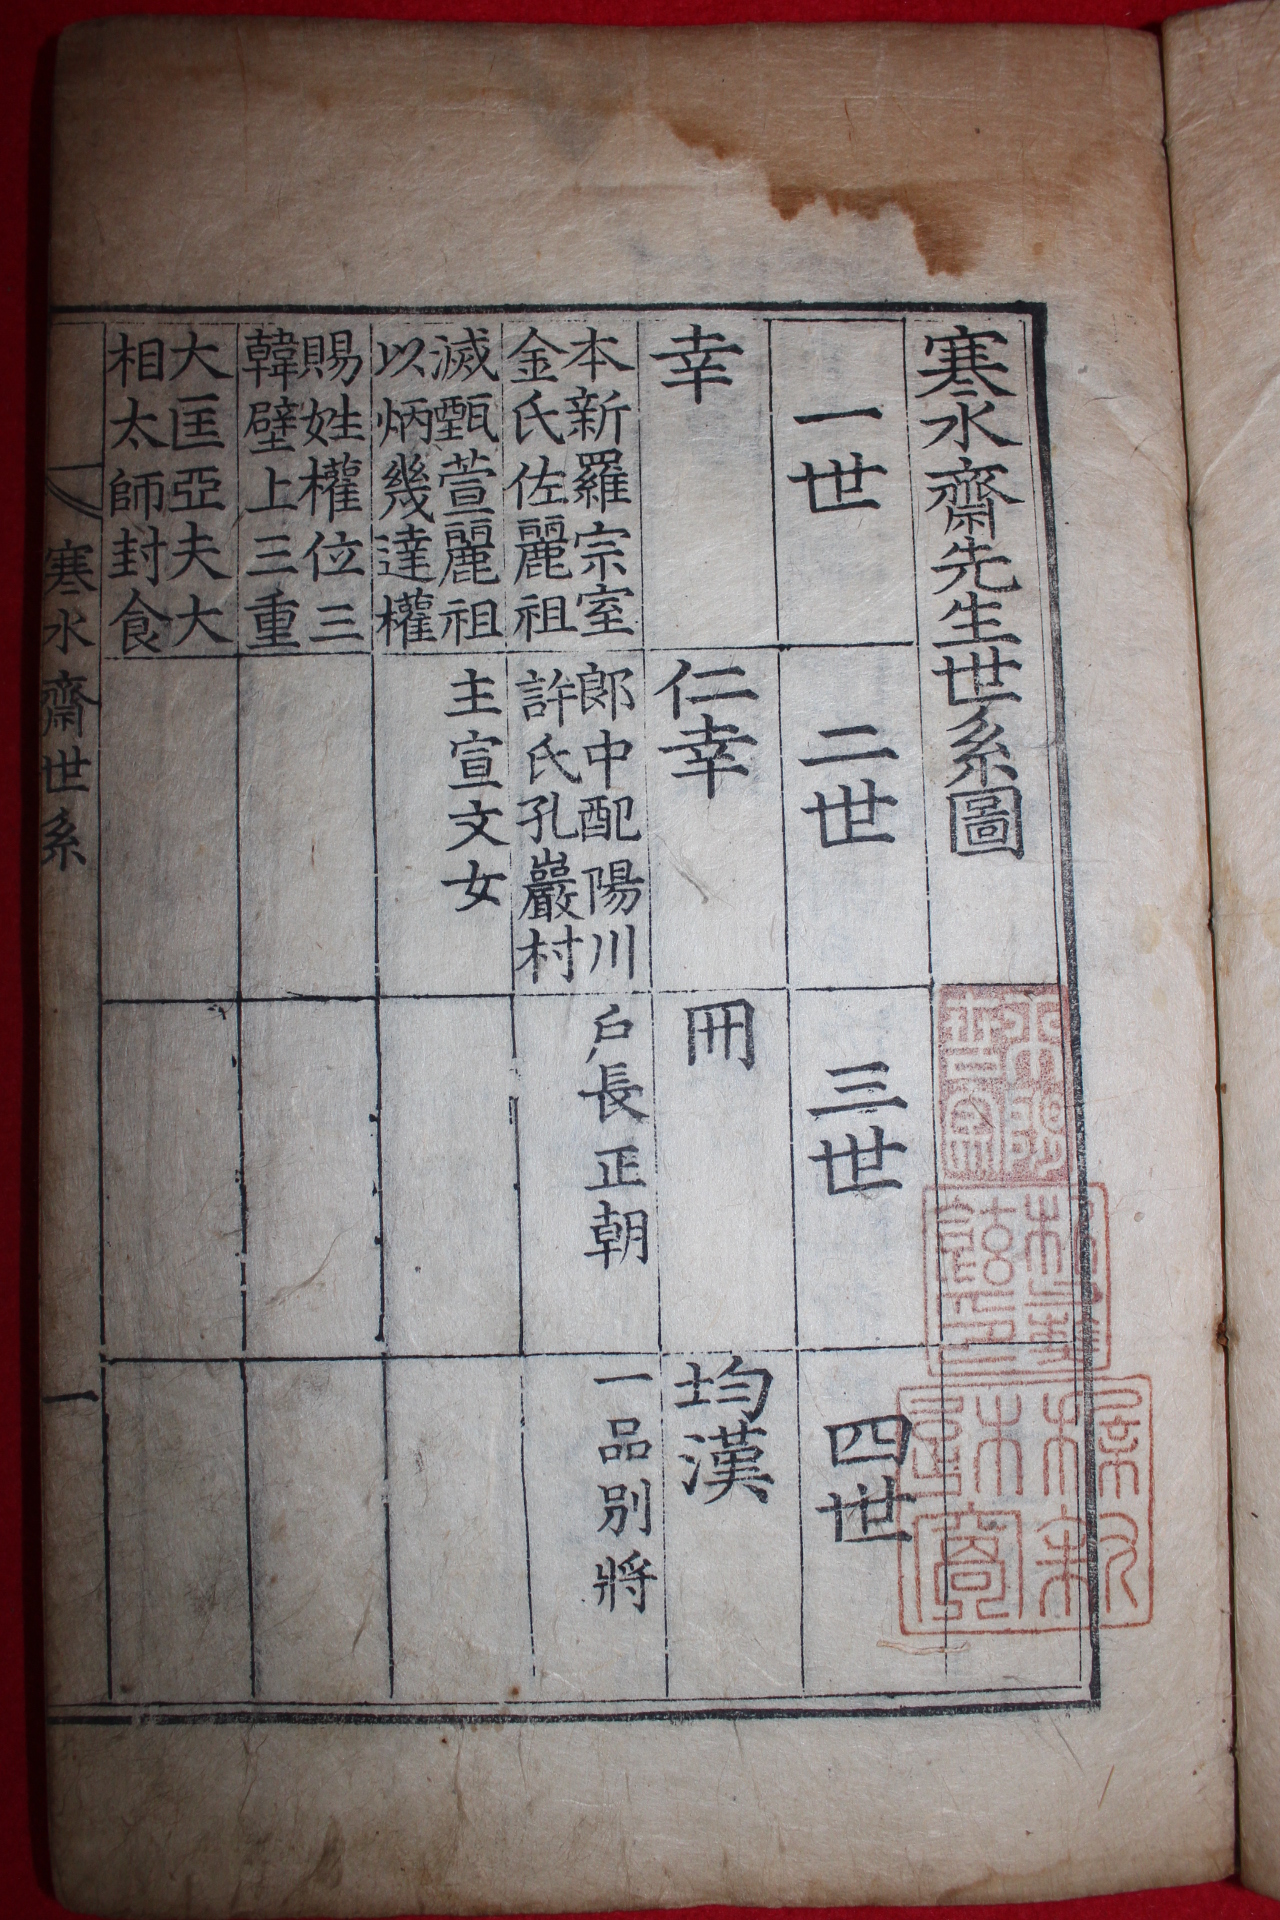 寒水齋先生世系圖
一世
二世
三世
四世
幸
仁幸
冊
均漢
本新羅宗室
金氏佐麗祖
滅甄萱麗祖
以炳幾達權
賜姓權位三
韓壁上三重
大匡亞夫大
相太師封食
郎中配陽川
許氏孔巖村
主宣文女
戶長正朝
一品別將
寒水齋世系
一